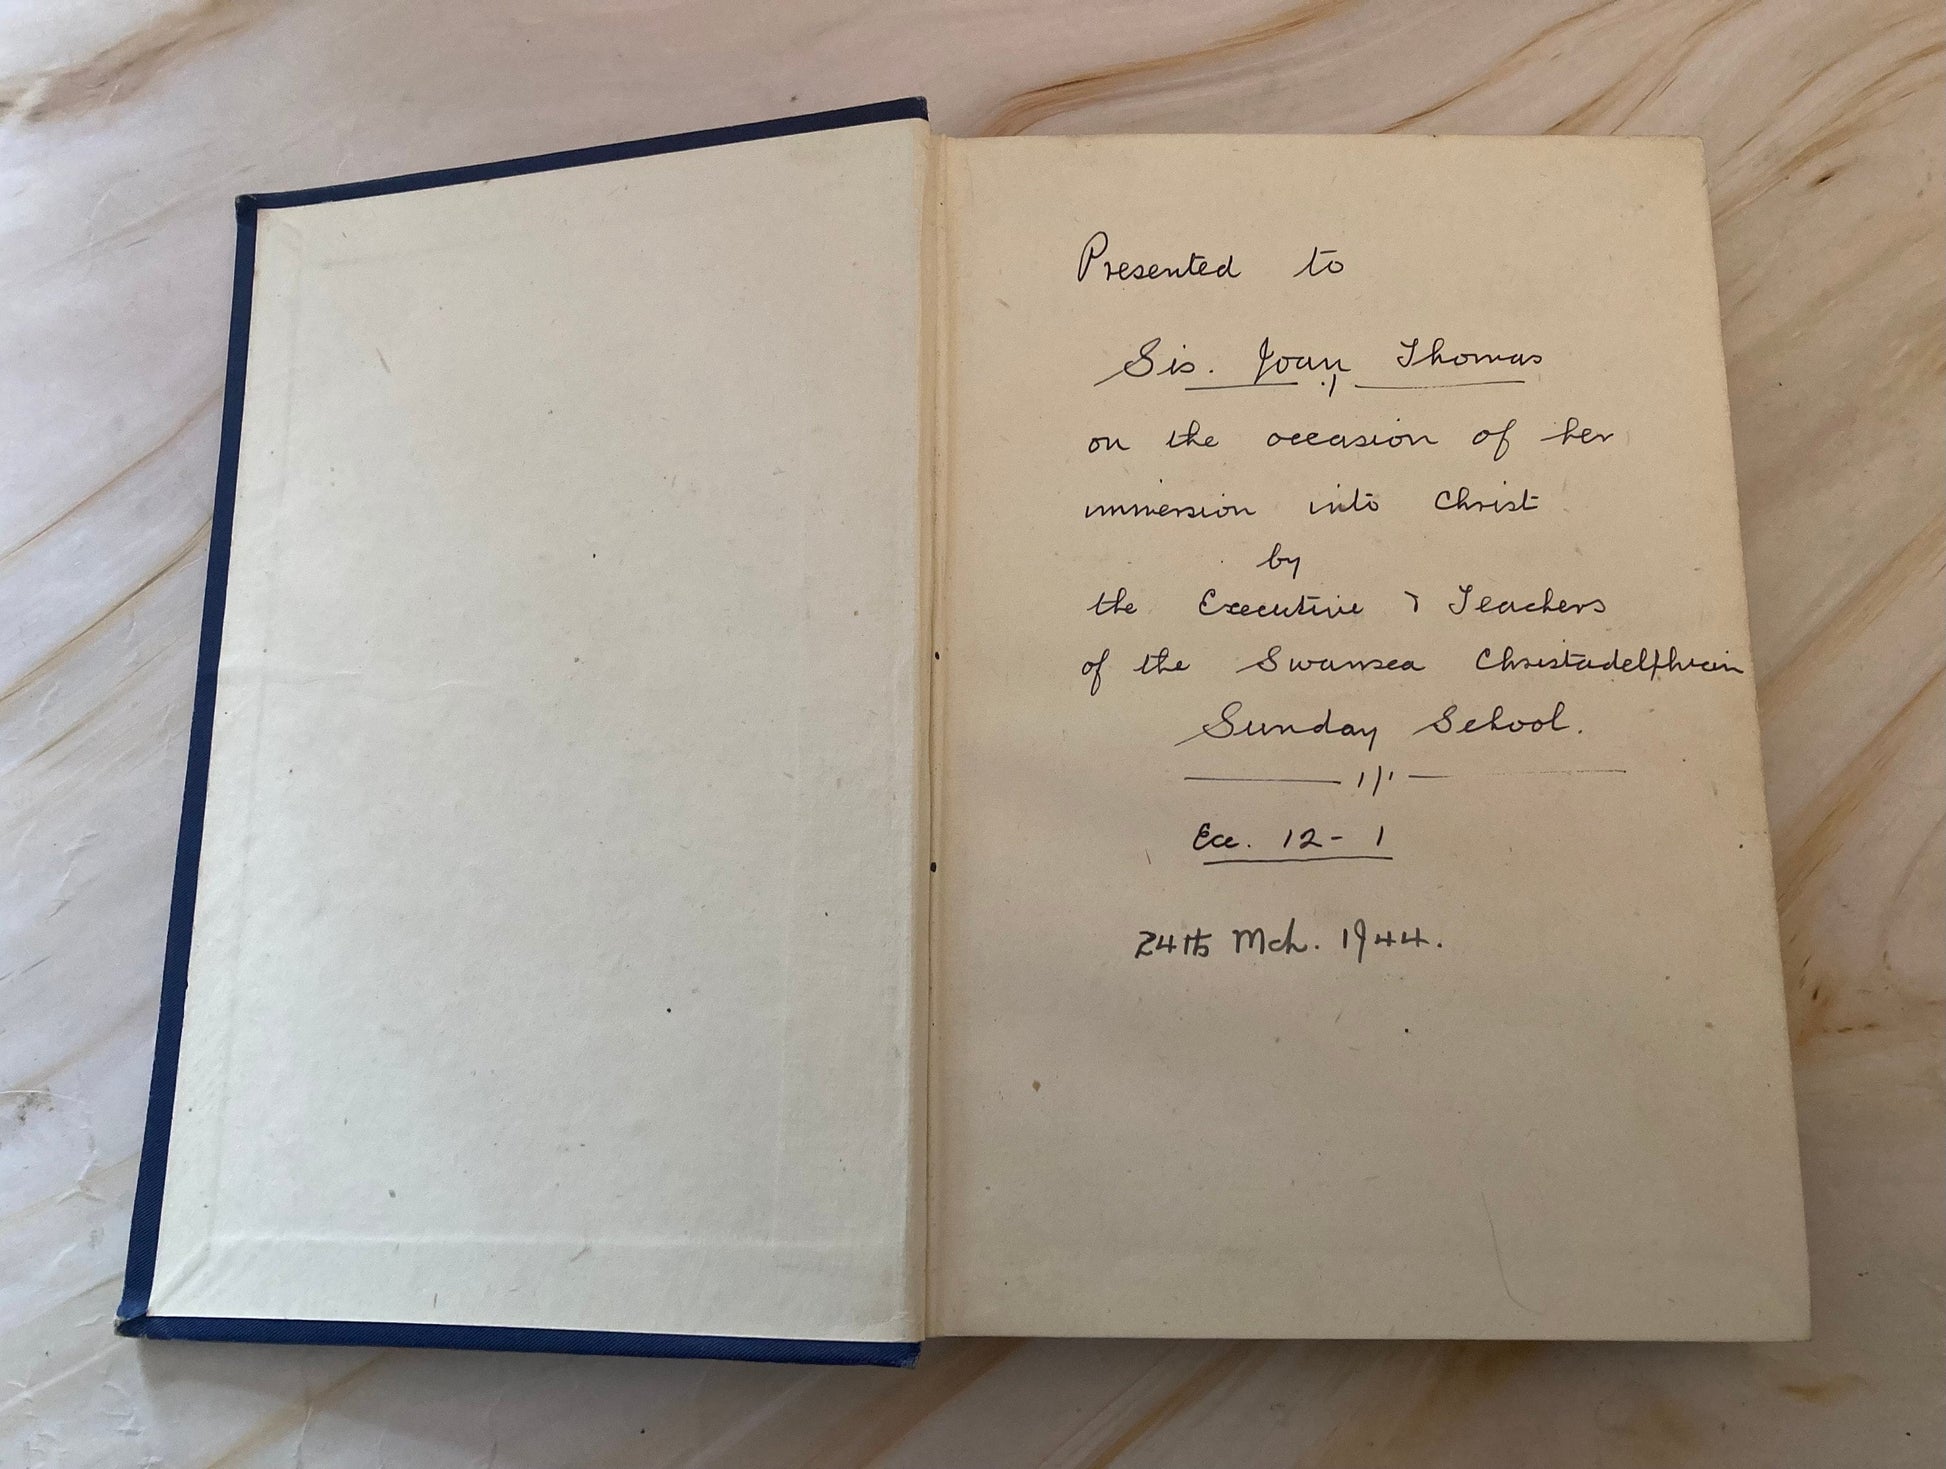 Presented to
Sis. Joan Thomas
on the occasion of her
immersion into Christ
by
the Executive & Teachers
of the Swansea Christadelphian
Sunday School.
Ecc. 12 - 1
24th Mch. 1944.